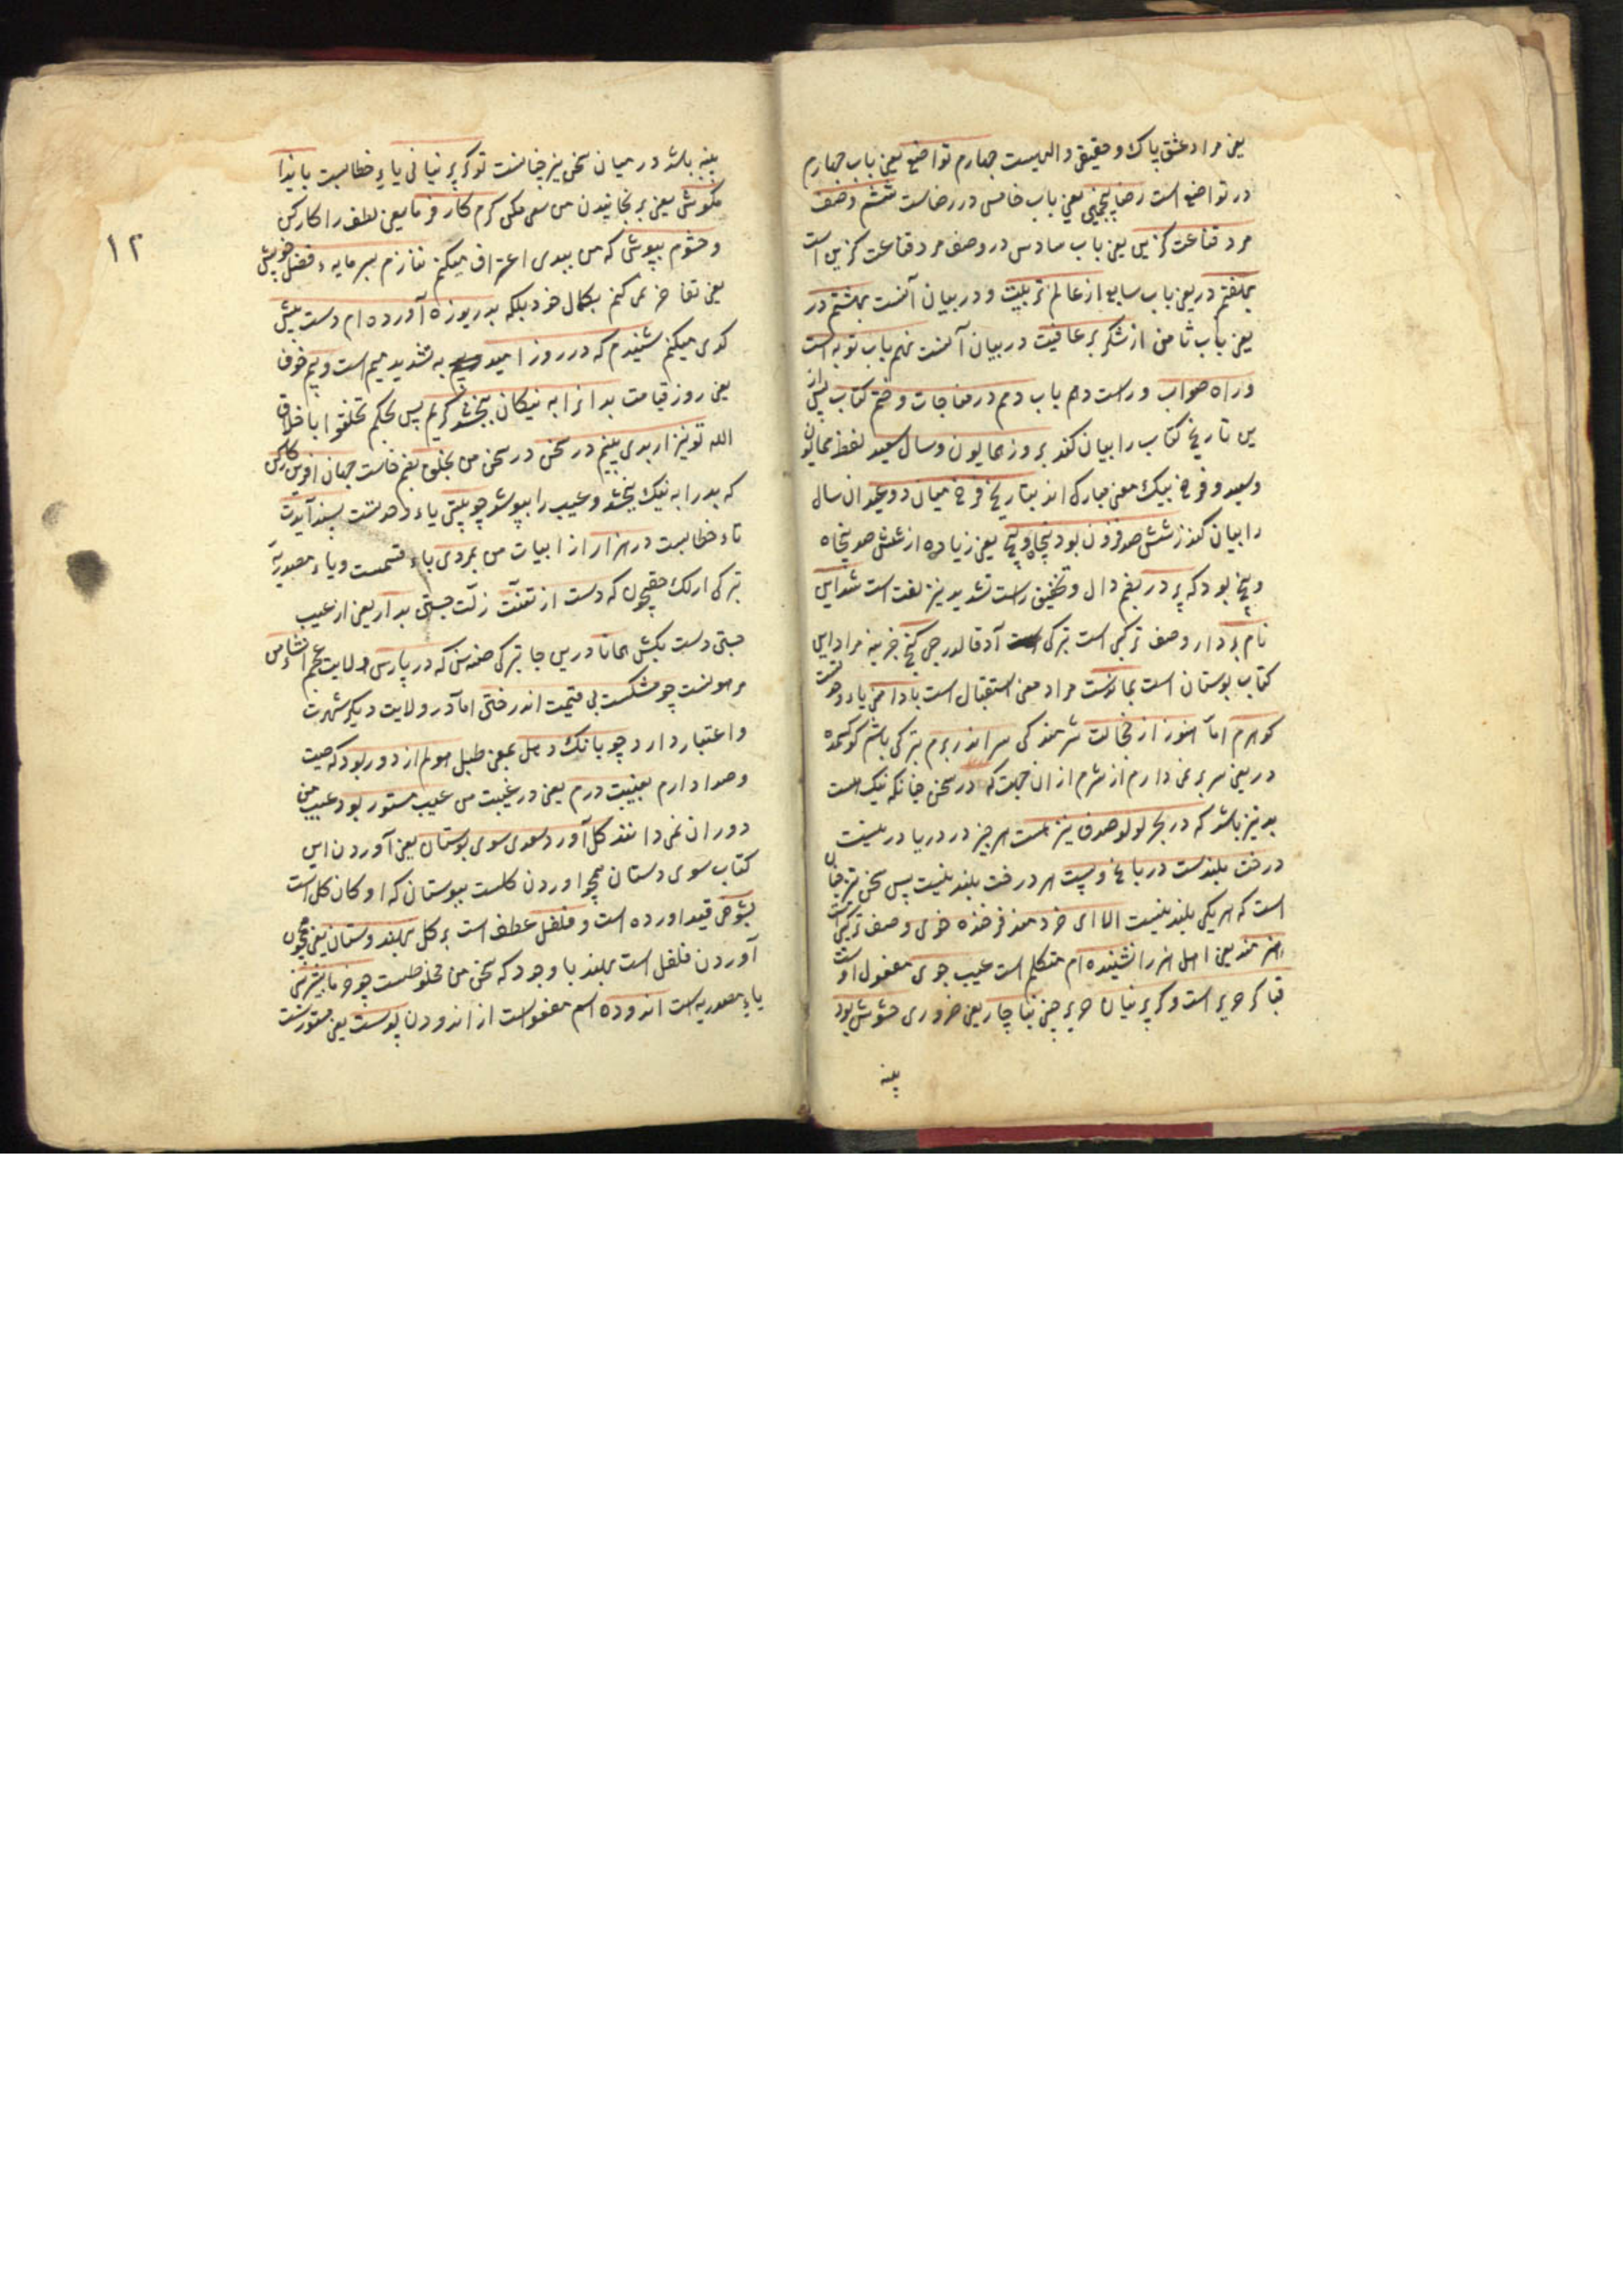 یعنی مراد عشق پاک و حقیقی و الهیست چهارم تواضع یعنی باب چهارم
در تواضع است رضا پنجمین یعنی باب خامس در رضاست ششم وصف
مرد قناعت گزین یعنی باب سادس در وصف مرد قناعت گزین است
بهفتم در یعنی باب سابع از عالم تربیت و در بیان آنست بهشتم در
یعنی باب ثامن از شکر بر عافیت در بیان آنست نهم باب توبه است
و راه صواب و راست دهم باب دهم در مناجات و ختم کتاب پس از
ین تاریخ کتاب را بیان کند بروز همایون و سال سعید لفظ همایون
و سعید و فرخ بیک معنی مبارک اند بتاریخ فرخ میان دو عید ان سال
را بیان کند ز ششصد فزون بود پنجاه و پنج یعنی زیاده از ششصد پنجاه
و پنج بود که پر در بضم دال و تخفیف راست تشدید نیز لغت است شد این
نام بردار وصف ترکیبی است ترکی آد قالدرجی گنج خزینه مراد این
کتاب بوستان است بماندست مراد معنی استقبال است با دامنی یاء وحدتست
گوهرم اما هنوز از خجالت شرمندگی سر اندر برم ترکی باشم کوکسمده
در یعنی سر بر نمی دارم از شرم از ان جهت که در سخن چنانکه نیک است
بد نیز باشد که در بحر لولو صدف نیز هست هر چیز در دریا در نیست
درخت بلندست در باغ و پست هر درخت بلند نیست پس سخن نیز چنان
است که هر یکی بلند نیست الا ای خردمند فرخنده خوی وصف ترکیبی است
هنرمند یعنی اهل هنر را نشنیده ام متکلم است عیب جوی مفعول اوست
قبا گر حریر است و گر پرنیان حریر چینی بناچار یعنی ضروری حشوش بود
پنبه
۱۲
پنبه باشد در میان سخن نیز چنانست تو گر پرنیانی یاء خطابست بایذا
مکوش یعنی برنجانیدن من سعی مکن کرم کار فرما یعنی لطف را کار کن
و حشوم بپوش که من ببدی اعتراف میکنم ننازم بسرمایه فضل خویش
یعنی تفاخر نمی کنم بکمال خود بلکه بدریوزه آورده ام دست پیش
کدی میکنم شنیدم که در روز امید و بیم به تشدید میم است و بیم خوف
یعنی روز قیامت بدانرا به نیکان ببخشد کریم پس بحکم تخلقوا باخلاق
الله تو نیز ار بدی بینیم در سخن در سخن من بخلق بضم خاست جهان افرین کار کن
که بد را به نیک بخشد و عیب را بپوشد چو بیتی یاء وحدتست پسند آیدت
تاء خطابست در هزار از ابیات من بمردی باء قسمست و یاء مصدریة
ترکی ارلک حقیچون که دست از تعنت زلت جستی بدار یعنی از عیب
جستی دست بکش همانا درین جا ترکی صنه سن که در پارس ولایت عجم انشاء من
مرهونست چو مشکست بی قیمت اندر ختن اما در ولایت دیگر شهرت
و اعتبار دارد چو بانک دهل بمعنی طبل هولم از دور بود که صیت
و صدا دارم بغیبت درم یعنی در غیبت من عیب مستور بود عیب من
دوران نمی دانند کل آورد سعدی سوی بوستان یعنی آوردن این
کتاب سوی دستان همچو اوردن کلست ببوستان که او کان کل است
بشوخی قید اورده است و فلفل عطف است بر کل بهندوستان یعنی همچون
آوردن فلفل است بهند با وجود که سخن من مخلوطست چو خرما بشیرینی
یاء مصدریه است اندوده اسم مفعولست از اندودن پوست یعنی مستورست